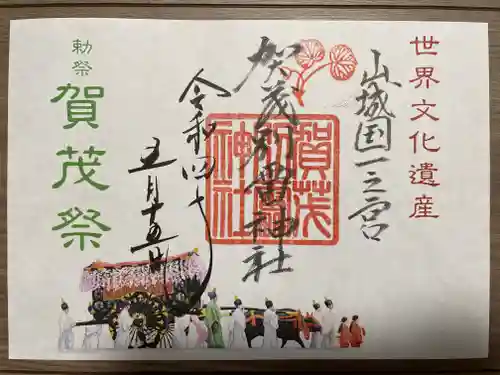 世界文化遺産
山城国一之宮
賀茂別雷神社
賀茂
別雷
神社
令和四年
五月十五日
勅祭
賀茂祭